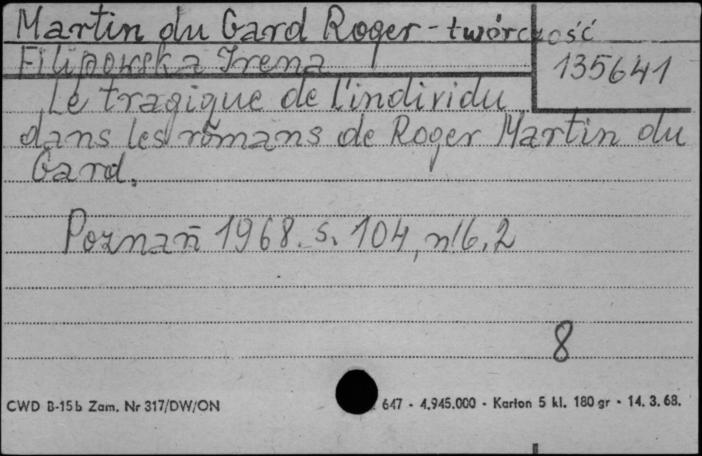 Martin du Gard Roger - twórczość
Filipowska Irena
135641
Le tragique de l'individu
dans les romans de Roger Martin du
Gard.
Poznań 1968. s. 104, nlb. 2
8
CWD B-15b Zam. Nr 317/DW/ON
647 - 4.945.000 - Karton 5 kl. 180 gr - 14. 3. 68.